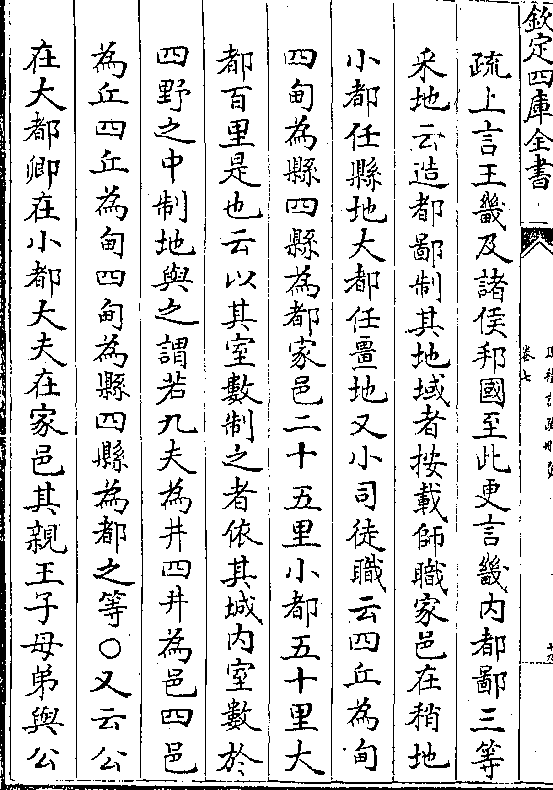 欽定四庫全書
卷七
疏上言王畿及諸侯邦國至此更言畿内都鄙三等
采地云造都鄙制其地域者按載師職家邑在稍地
小都任縣地大都任畺地又小司徒職云四丘為甸
四甸為縣四縣為都家邑二十五里小都五十里大
都百里是也云以其室數制之者依其城内室數於
四野之中制地與之謂若九夫為井四井為邑四邑
為丘四丘為甸四甸為縣四縣為都之等○又云公
在大都卿在小都大夫在家邑其親王子母弟與公